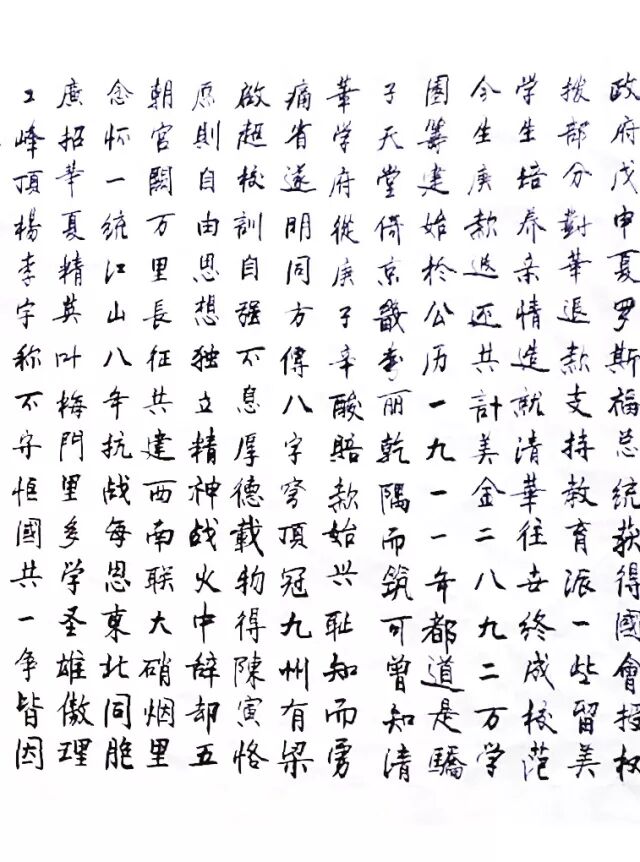 政府戊申夏罗斯福总统获得國會授权
拨部分對華退款支持教育派一些留美
学生培养亲情造就清華往世终成校范
今生庚款退还共計美金二八九二万学
園筹建始於公历一九一一年都道是驕
子天堂倚京畿秀丽乾隅而筑可曾知清
華学府從庚子辛酸賠款始兴耻知而勇
痛省遂明同方傅八字穹頂冠九州有梁
啟超校訓自强不息厚德载物得陳寅恪
原則自由思想独立精神战火中辞却五
朝官闕万里長征共建西南联大硝烟里
念怀一统江山八年抗战每恩東北同胞
廣招華夏精英叶梅門里多学圣雄傲理
工峰頂楊李宇称不守恒國共一争皆因